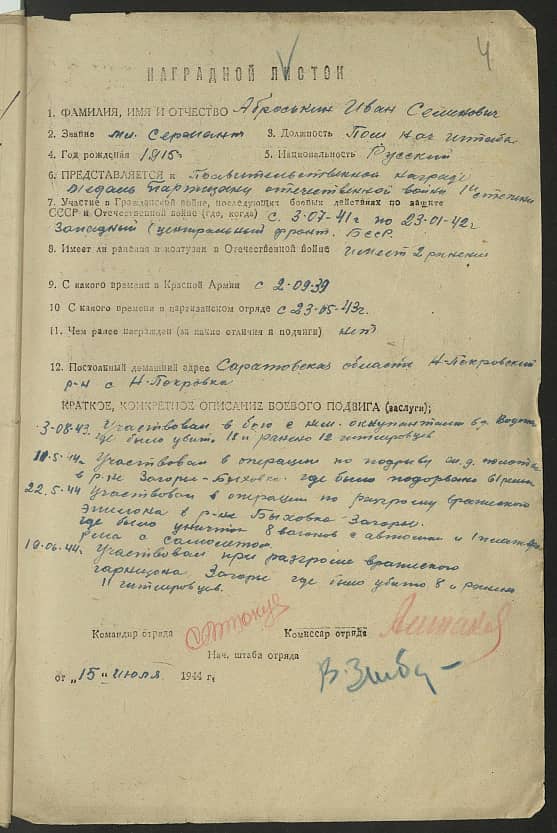 4
НАГРАДНОЙ ЛИСТОК
1. ФАМИЛИЯ, ИМЯ И ОТЧЕСТВО Аброськин Иван Семенович
2. Звание мл. сержант 3. Должность Пом нач штаба
4. Год рождения 1915г 5. Национальность Русский
6. ПРЕДСТАВЛЯЕТСЯ к Правительственной награде
медаль партизану отечественной войны 1й степени
7. Участие в Гражданской войне, последующих боевых действиях по защите
СССР и Отечественной войне (где, когда) с 3-07-41г по 23-01-42г
Западный (центральный фронт. БССР.
8. Имеет ли ранения и контузии в Отечественной войне имеет 2 ранения
9. С какого времени в Красной Армии с 2-09-39
10 С какого времени в партизанском отряде с 23-05-43г.
11. Чем ранее награжден (за какие отличия и подвиги) нет
12. Постоянный домашний адрес Саратовская область Н-Покровский
р-н с Н-Покровка
КРАТКОЕ, КОНКРЕТНОЕ ОПИСАНИЕ БОЕВОГО ПОДВИГА (заслуги);
3-08-43. Участвовал в бою с нем. оккупантами
где было убито 18 и ранено 12 гитлеровцев
5-44г. Участвовал в операции по подрыву полотна
в р-не Загорье-Быховка. где было подорвано
22.5.44 Участвовал в операции по разгрому вражеского
эшелона в р-не Быховка-Загорье.
где было уничтож 8 вагонов с автомат и 1 платфор
рма с самолетом.
19.06.44г. Участвовал при разгроме вражеского
гарнизона Загорье где было убито 8 и ранено
11 гитлеровцев.
Командир отряда Комиссар отряда
Нач. штаба отряда
от „15" июля 1944 г.